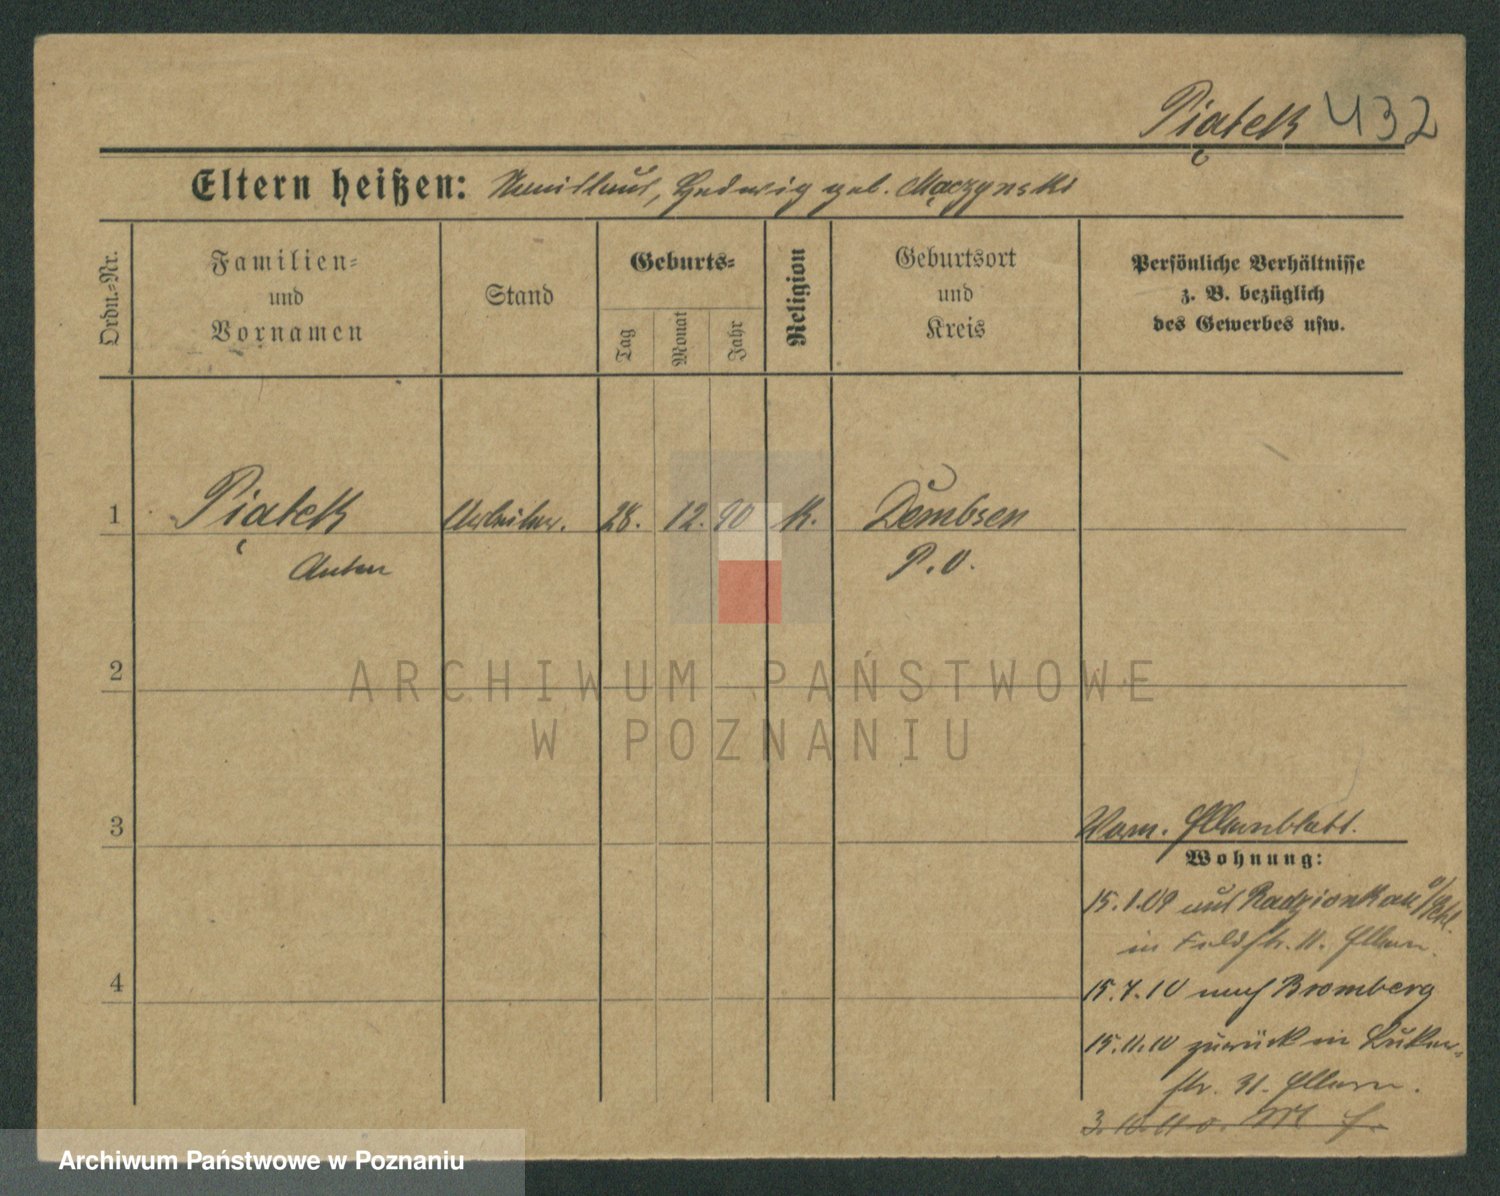 Piątek 432
Eltern heißen: Hedwig geb. Mączynski
Ordn.-Nr.
Familien-
und
Vornamen
Stand
Geburts-
Tag
Monat
Jahr
Religion
Geburtsort
und
Kreis
Persönliche Verhältnisse
z. B. bezüglich
des Gewerbes usw.
1 Piątek Arbeiter. 28. 12. 90 K. Dembsen
Anton P. O.
2
ARCHIWUM PAŃSTWOWE
W POZNANIU
3 Vorm. Elternblatt.
Wohnung:
15.1.09 aus Radzionkau O/Schl.
in Feldstr. 11. Eltern.
4 15.4.10 nach Bromberg
15.11.10 zurück in
str. 31. Eltern.
Archiwum Państwowe w Poznaniu